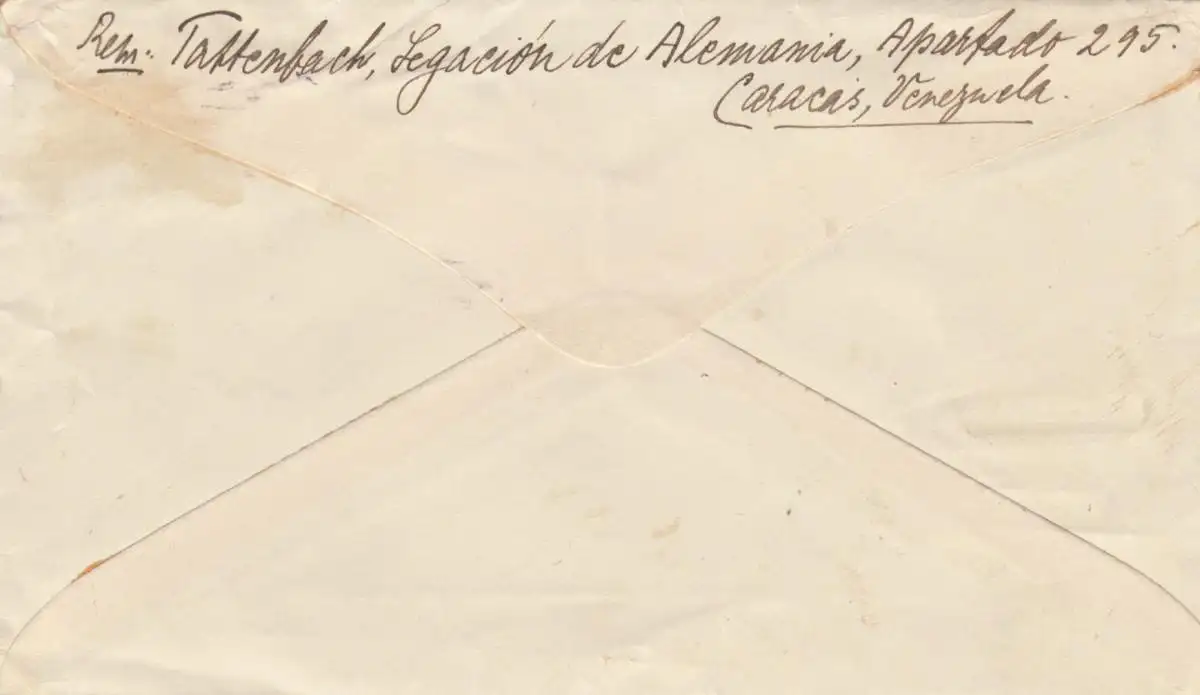 Rem: Tattenbach, Legación de Alemania, Apartado 295.
Caracas, Venezuela.